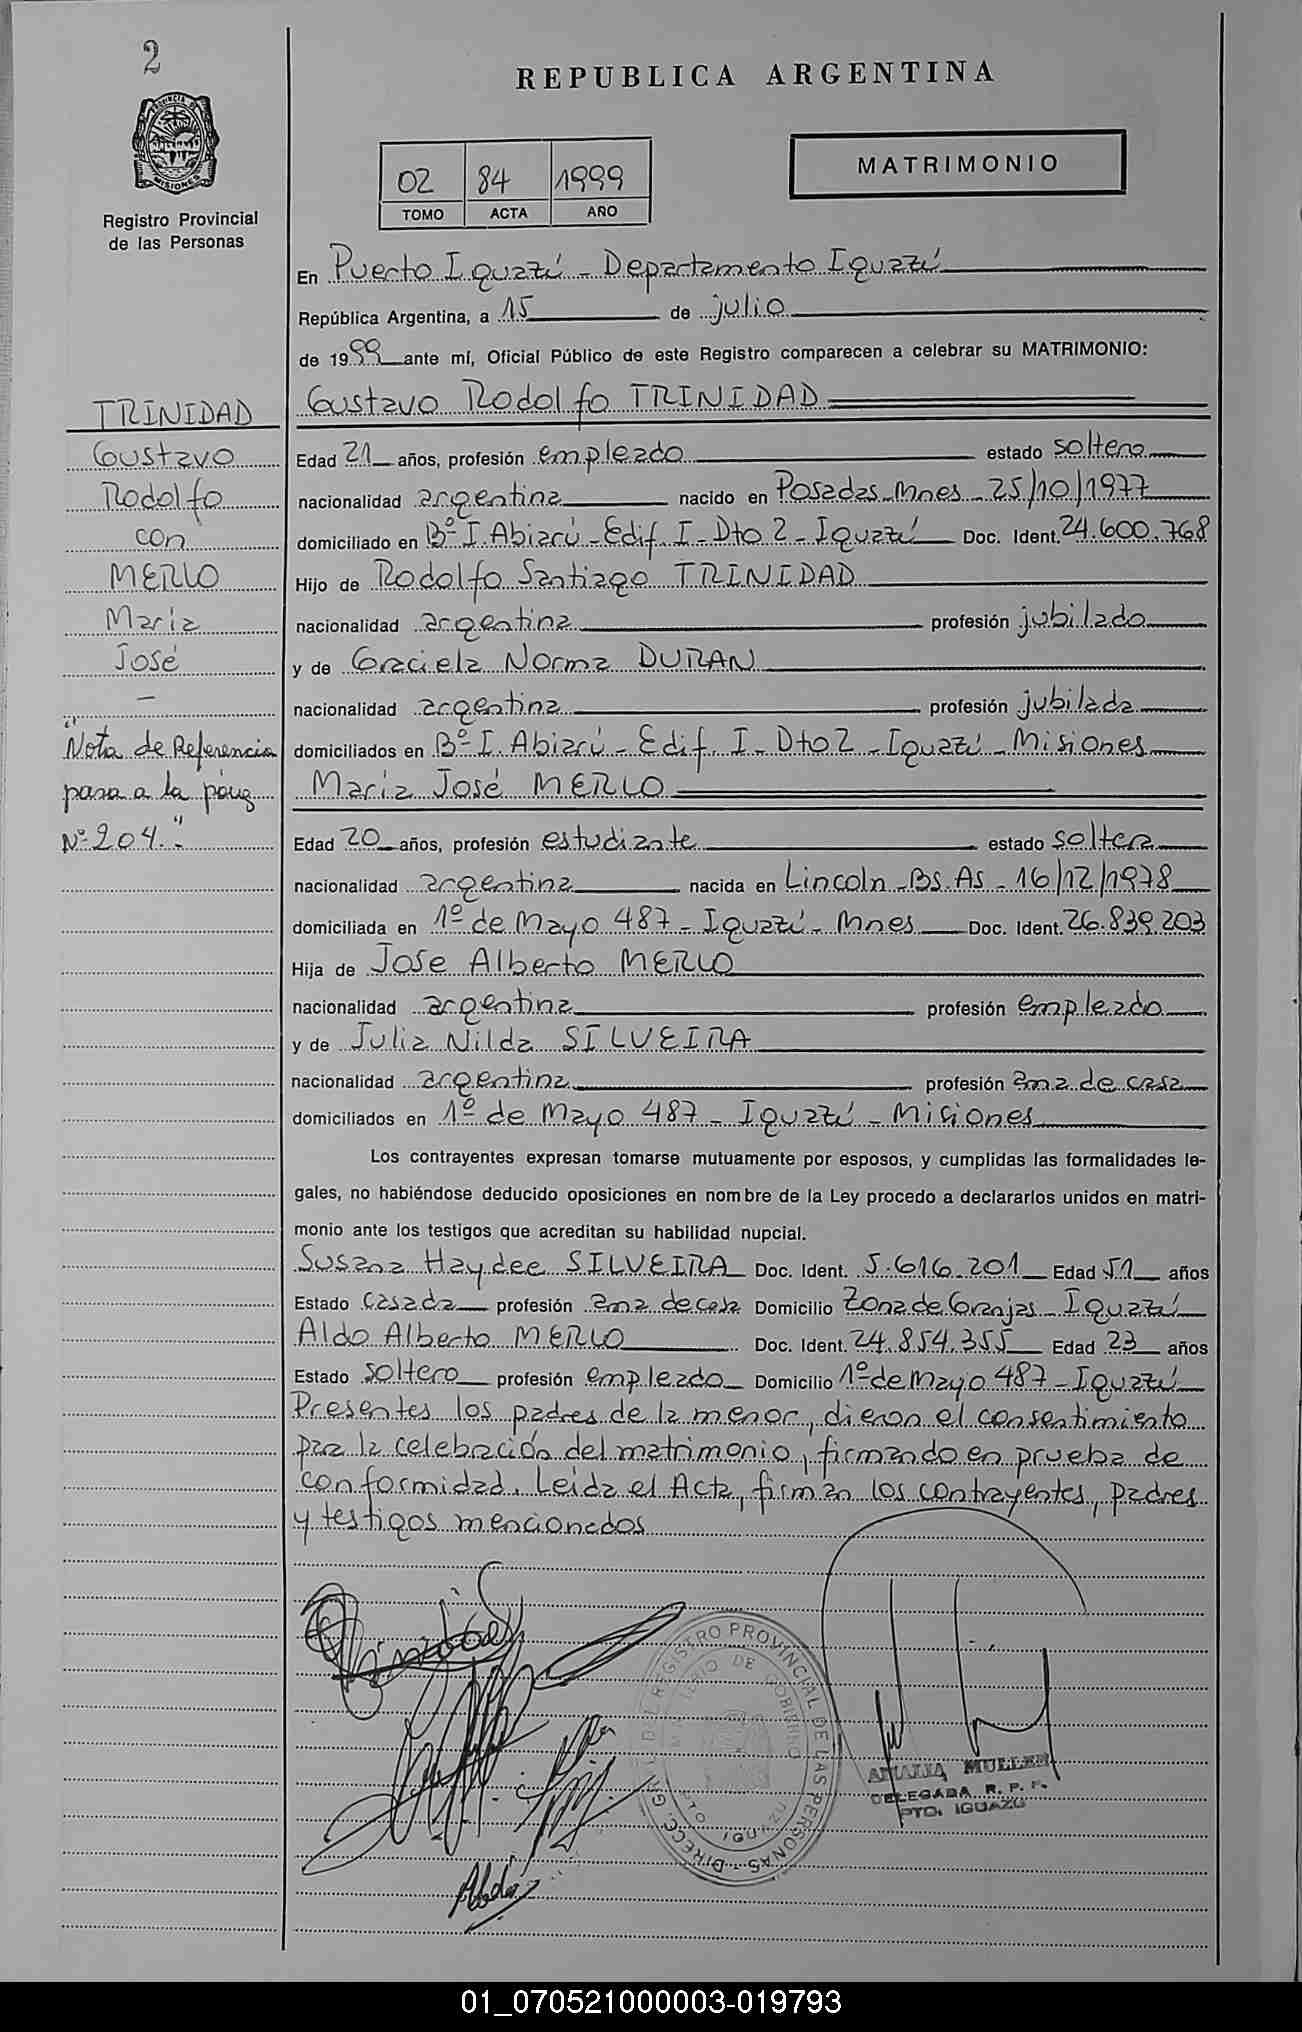 2
PROVINCIA DE
MISIONES
Registro Provincial
de las Personas
REPUBLICA ARGENTINA
02 84 1999
TOMO ACTA AÑO
MATRIMONIO
En Puerto Iguazú - Departamento Iguazú
República Argentina, a 15 de julio
de 1999 ante mí, Oficial Público de este Registro comparecen a celebrar su MATRIMONIO:
Gustavo Rodolfo TRINIDAD
Edad 21 años, profesión empleado estado soltero
nacionalidad argentina nacido en Posadas-Mnes - 25/10/1977
domiciliado en Bº I. Abiarú - Edif. I - Dto 2 - Iguazú Doc. Ident. 24.600.768
Hijo de Rodolfo Santiago TRINIDAD
nacionalidad argentina profesión jubilado
y de Graciela Norma DURAN
nacionalidad argentina profesión jubilada
domiciliados en Bº I. Abiarú - Edif I - Dto 2 - Iguazú - Misiones
María José MERLO
Edad 20 años, profesión estudiante estado soltera
nacionalidad argentina nacida en Lincoln - Bs. As - 16/12/1978
domiciliada en 1º de Mayo 487 - Iguazú - Mnes Doc. Ident. 26.839.203
Hija de Jose Alberto MERLO
nacionalidad argentina profesión empleado
y de Julia Nilda SILVEIRA
nacionalidad argentina profesión ama de casa
domiciliados en 1º de Mayo 487 - Iguazú - Misiones
Los contrayentes expresan tomarse mutuamente por esposos, y cumplidas las formalidades le-
gales, no habiéndose deducido oposiciones en nombre de la Ley procedo a declararlos unidos en matri-
monio ante los testigos que acreditan su habilidad nupcial.
Susana Haydee SILVEIRA Doc. Ident. 5.616.201 Edad 51 años
Estado casada profesión ama de casa Domicilio Zona de Granjas - Iguazú
Aldo Alberto MERLO Doc. Ident. 24.854.355 Edad 23 años
Estado soltero profesión empleado Domicilio 1º de Mayo 487 - Iguazú
Presentes los padres de la menor, dieron el consentimiento
para la celebración del matrimonio, firmando en prueba de
conformidad. Leída el Acta, firman los contrayentes, padres
y testigos mencionados
TRINIDAD
Gustavo
Rodolfo
con
MERLO
María
José
-
"Nota de Referencia
pasa a la pág
Nº 204."
DIRECC. GRAL. DEL REGISTRO PROVINCIAL DE LAS PERSONAS
MINISTERIO DE GOBIERNO
PTO. IGUAZU
AMALIA MULLER
DELEGADA R. P. P.
PTO. IGUAZU
01_070521000003-019793